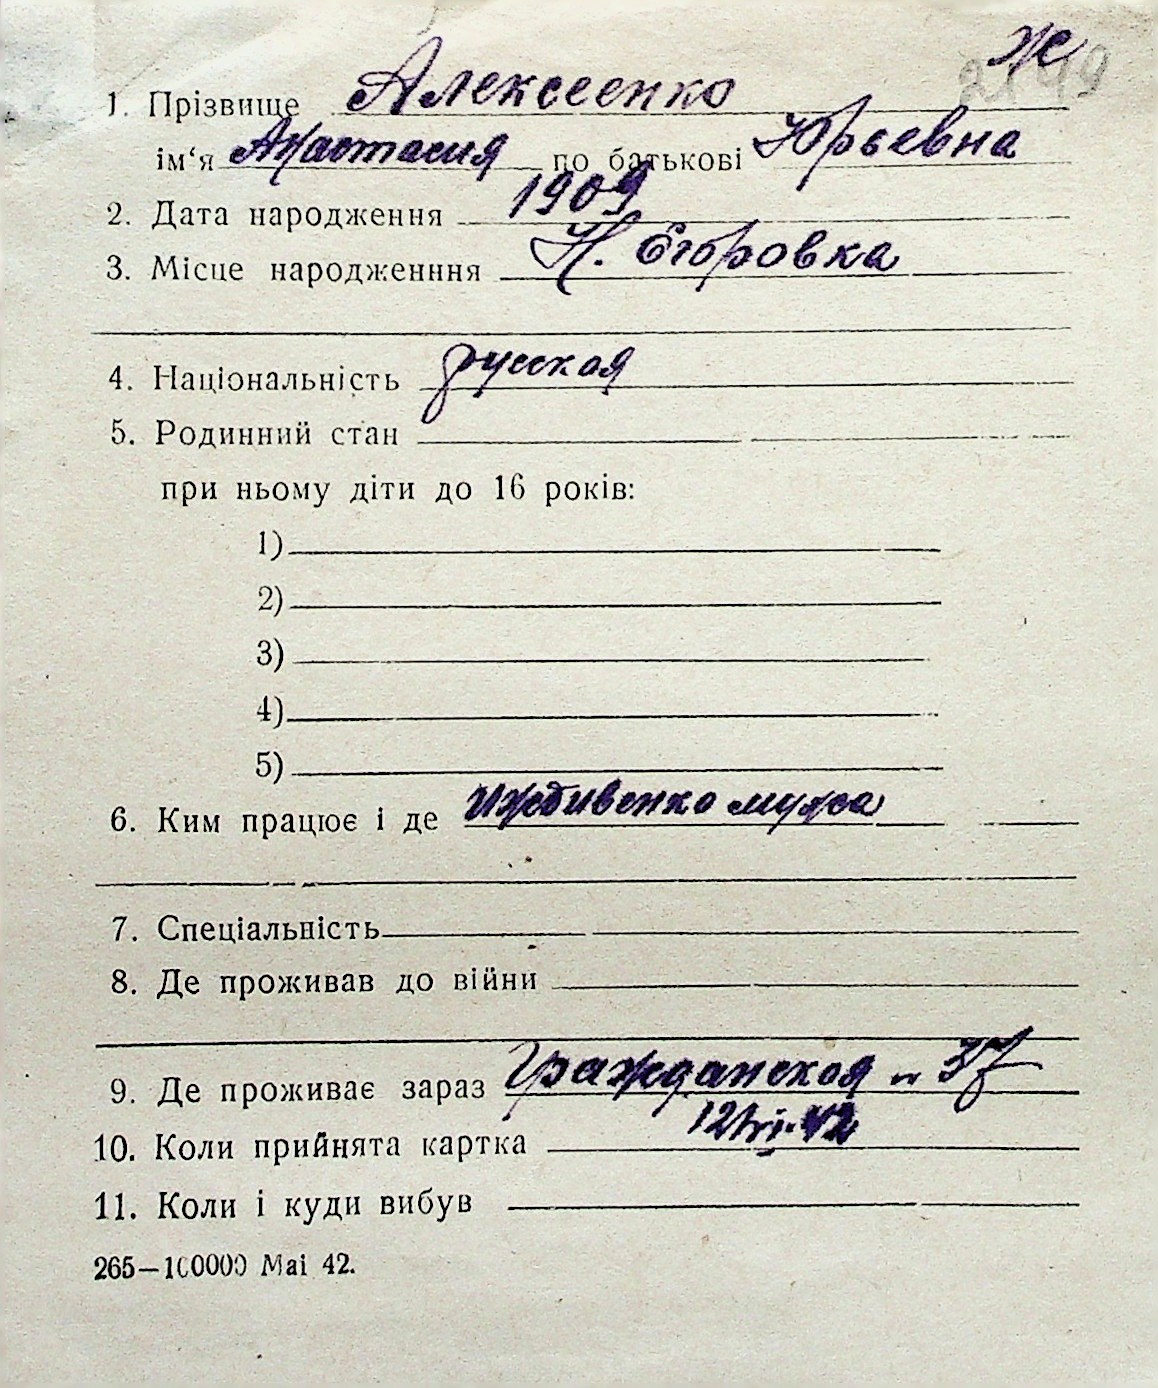 Ж
1. Прізвище Алексеенко
ім‘я Анастасия по батькові Юрьевна
2. Дата народження 1909
3. Місце народженння Н. Єгоровка
4. Національність русская
5. Родинний стан
при ньому діти до 16 років:
1)
2)
3)
4)
5)
6. Ким працює і де Иждивенко мужа
7. Спеціальність
8. Де проживав до війни
9. Де проживає зараз Гражданская 37
10. Коли прийнята картка 12/VI-42
11. Коли і куди вибув
265—100000 Mai 42.